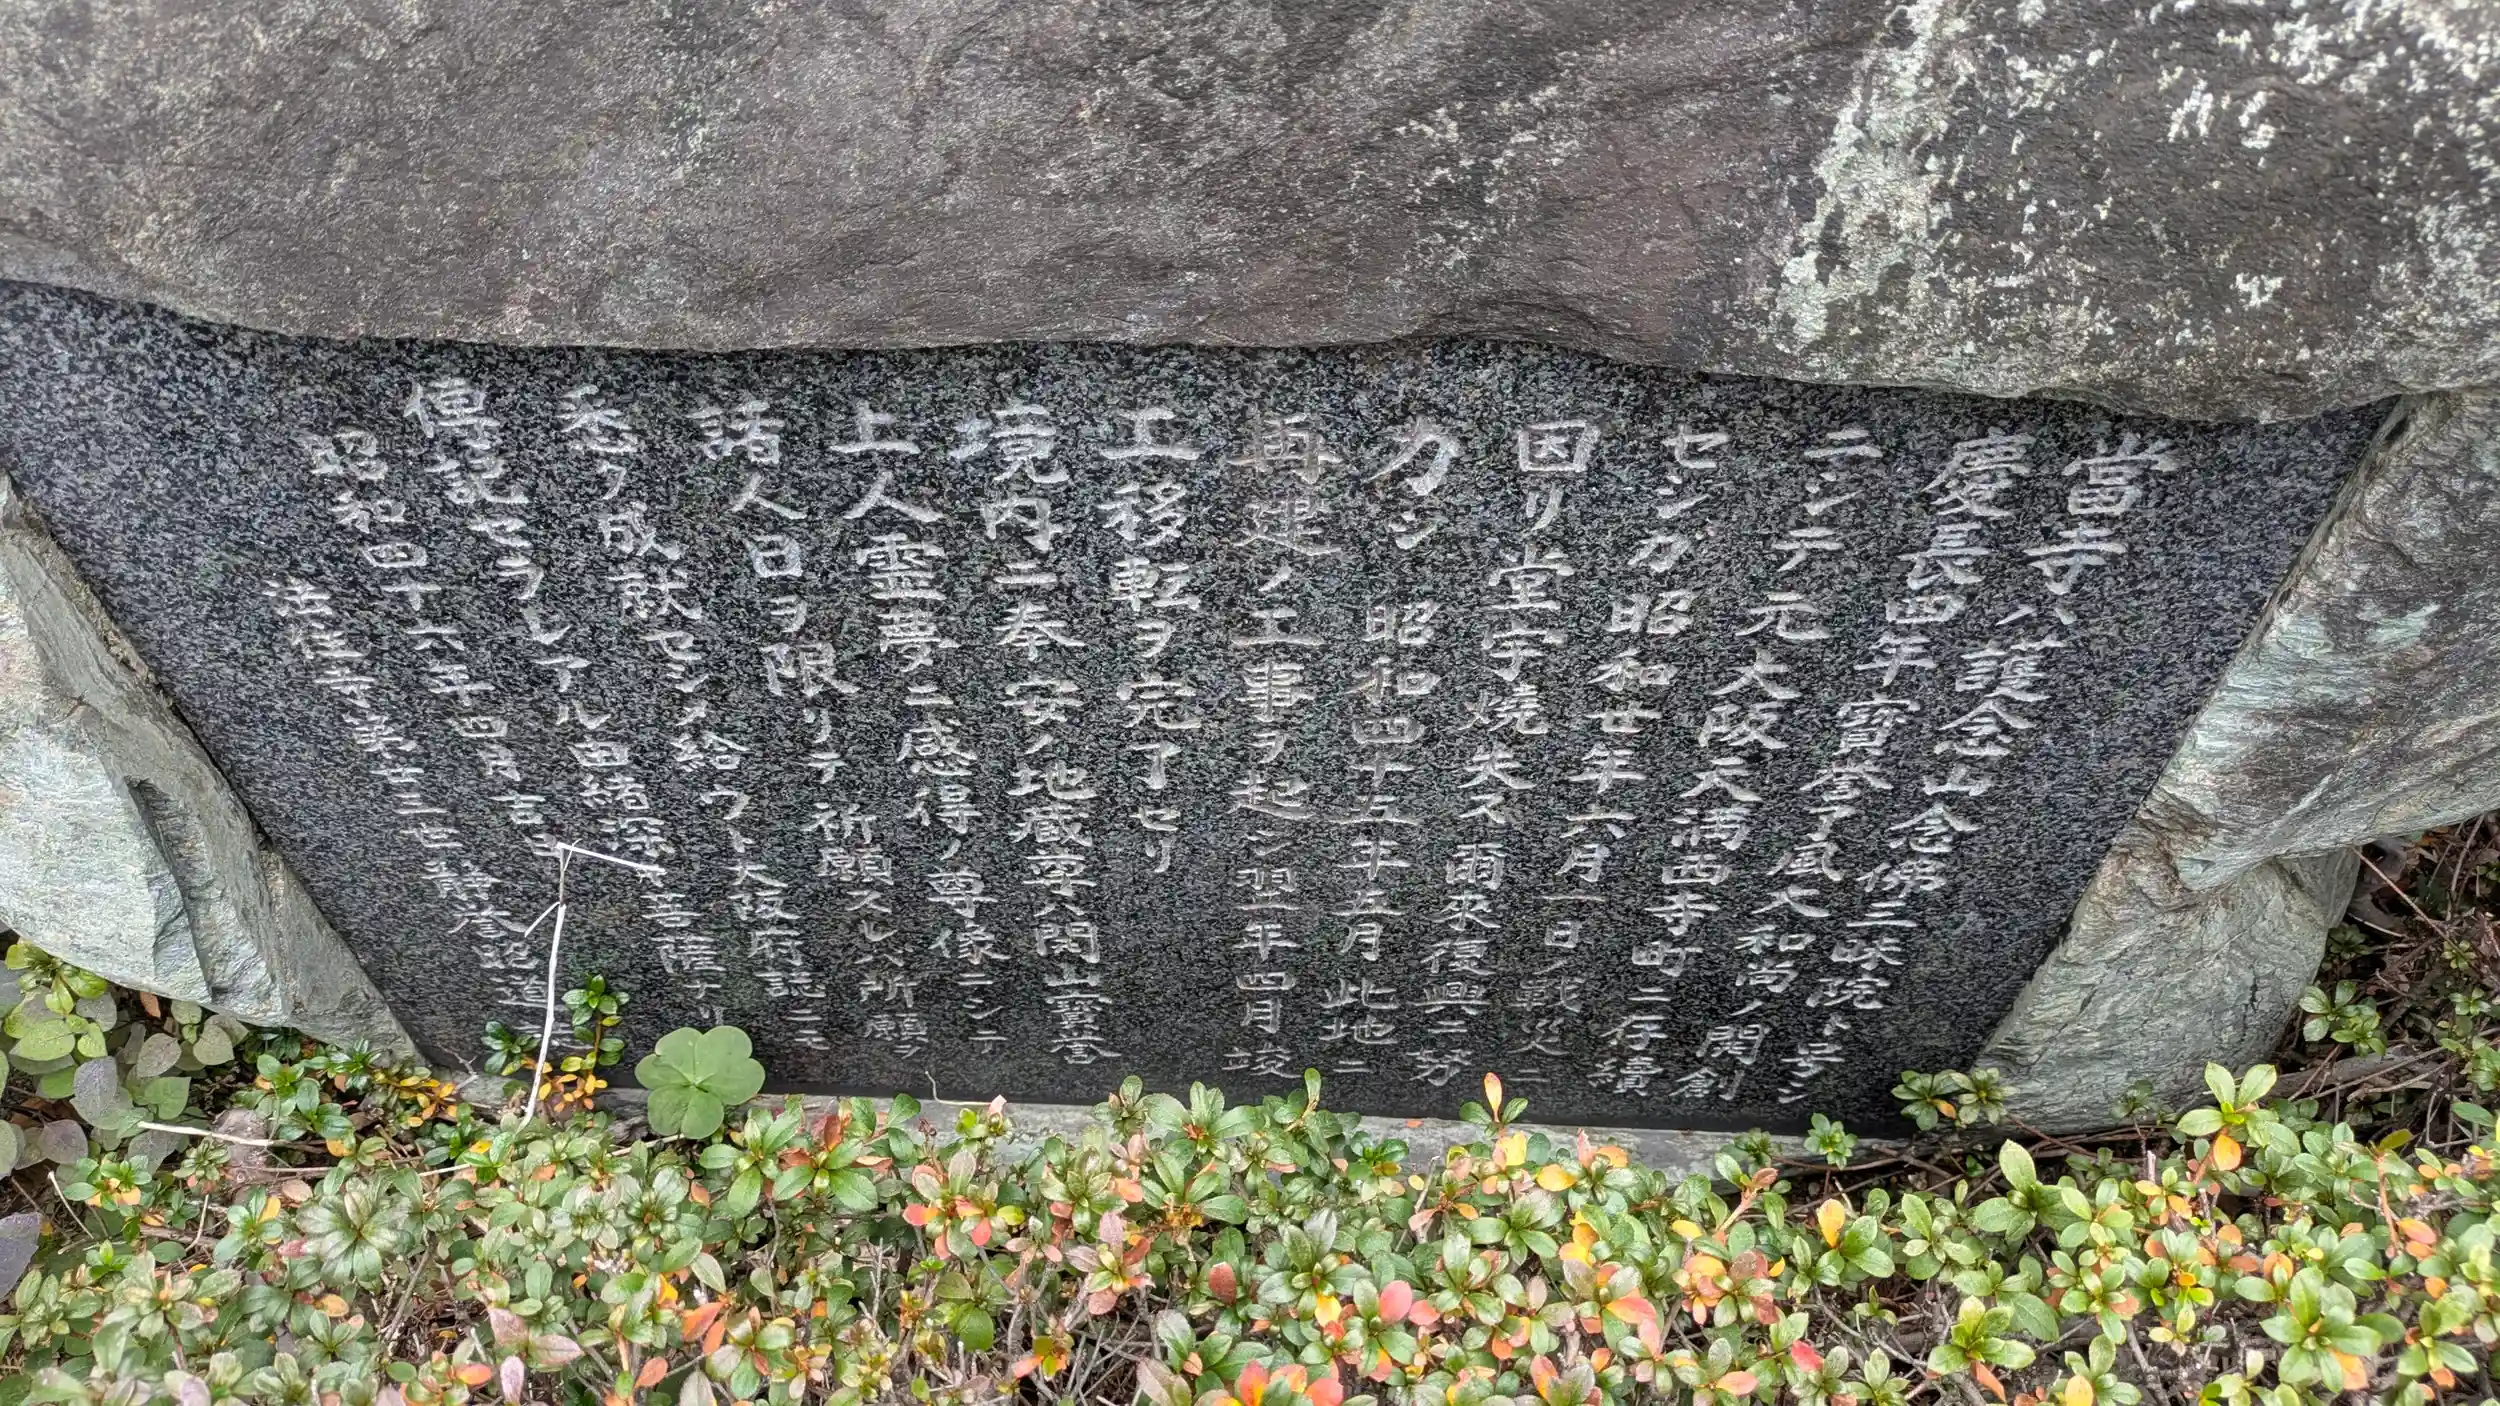 當寺ハ護念山念佛三昧院ト号シ
慶長四年寶誉夢風大和尚ノ開創
ニシテ元大阪天満西寺町ニ存續
セシガ昭和廿年六月一日ノ戰災ニ
因リ堂宇燒失ス爾来復興ニ努
力シ昭和四十五年五月此地ニ
再建ノ工事ヲ起シ翌年四月竣
工移転ヲ完了セリ
境内ニ奉安ノ地蔵尊ハ開山寶誉
上人霊夢ノニ感得ノ尊像ニシテ
諸人日ヲ限リテ祈願スレバ所願ヲ
悉ク成就セシメ給ウト大阪府誌ニモ
傳記セラレアル由緒深キ菩薩ナリ
昭和四十六年四月吉日
法住寺第廿三世静誉